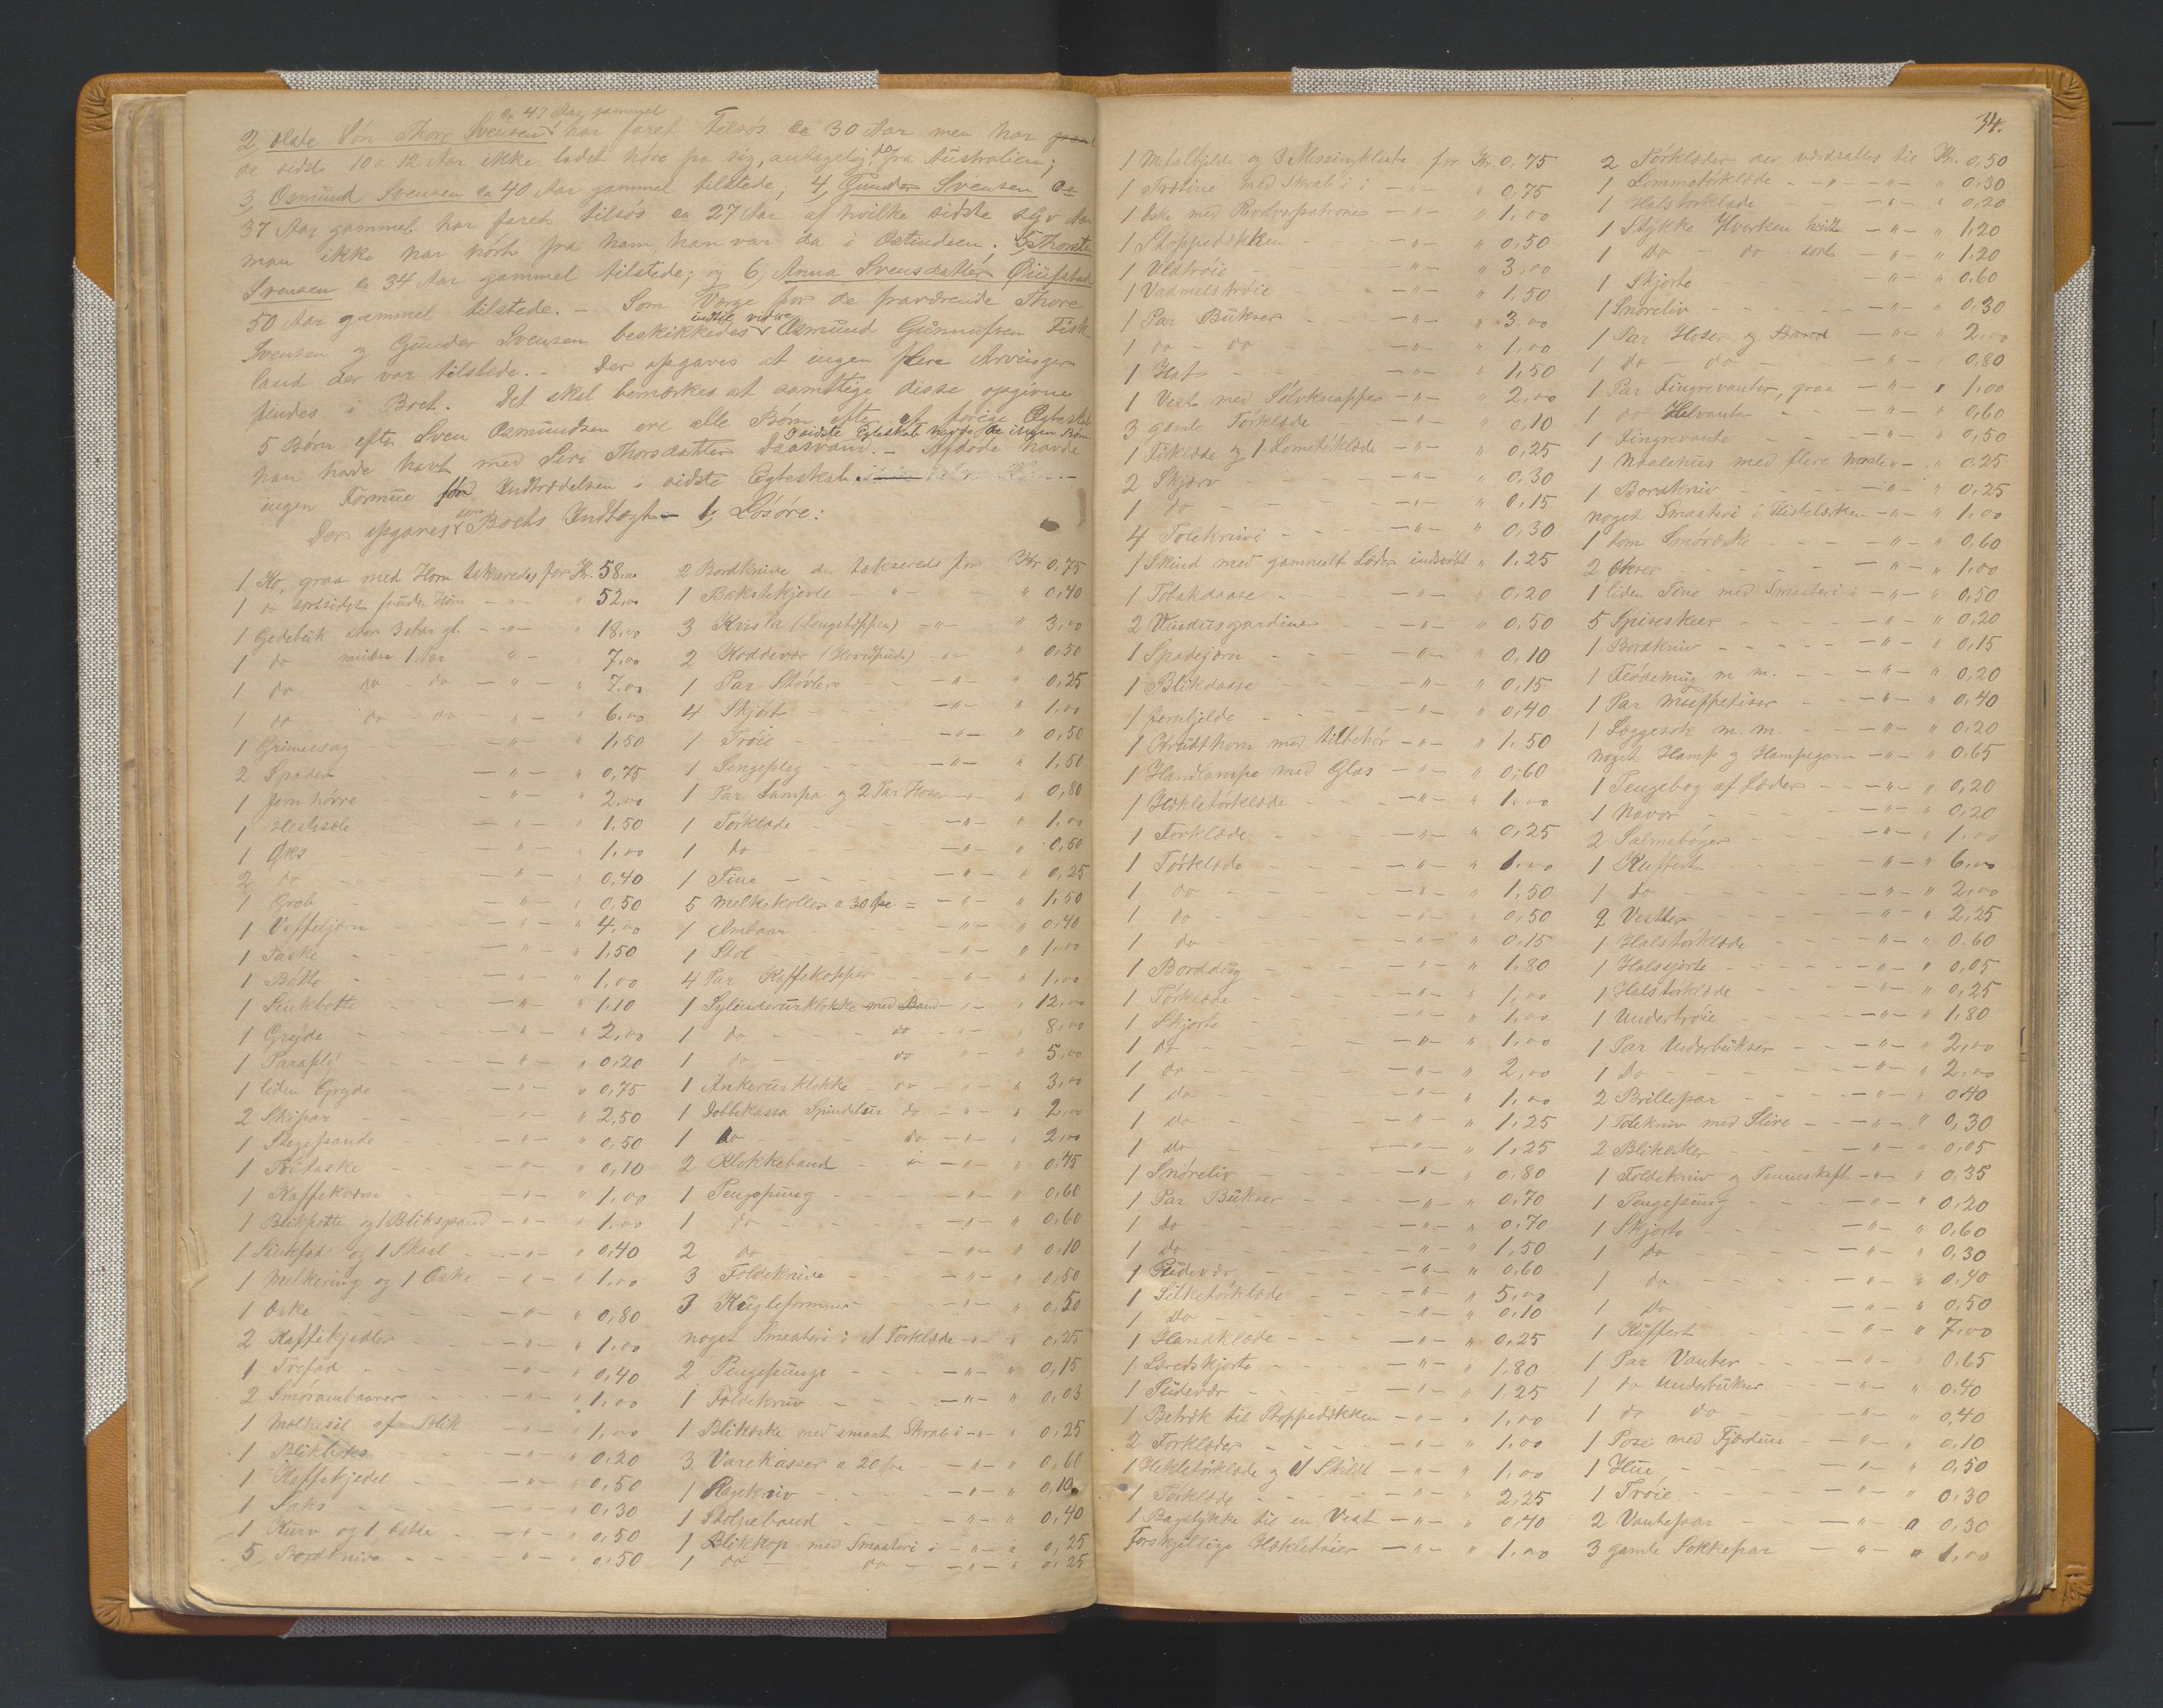 ca 47 Aar gammel
2, ælste Søn Thore Svensen har faret tilsøs ca 30 Aar men har
de sidste 10 a 12 Aar ikke ladet høre fra sig, antagelig da fra Australien;
3, Osmund Svensen ca 40 Aar gammel tilstede; 4, Gunder Svensen ca
37 Aar gammel har faret tilsøs ca 27 Aar af hvilke sidste syv Aar
man ikke har hørt fra ham, han var da i Ostindien. 5, Thorsten
Svensen ca 34 Aar gammel tilstede; og 6, Anna Svensdatter
50 Aar gammel tilstede. - Som Værge for de fraværende Thore
Svensen og Gunder Svensen beskikkedes indtil videre Osmund Gunnufsen Fisk-
land der var tilstede. - Der opgaves at ingen flere Arvinger
findes i Boet. Det skal bemærkes at samtlige disse opgivne
5 Børn efter Sven Osmundsen ere alle Børn efter et forige Egteskab
I sidste Egteskab havde de ingen Børn
han havde havt med Siri Thorsdatter Daasvand. - Afdøde havde
ingen Formue før Indtrædelsen i sidste Egteskab
Der opgaves som Boets Indtægt - 1, Løsøre:
1 Ko, graa med Horn takseredes for Kr. 58,00
1 do sortsidet foruden Horn - " - " 52,00
1 Gedebuk stor 3 Aar gl. - " - " 18,00
1 do mindre 1 Aar " - " 7,00
1 do do - do - " - " 7,00
1 do do - do - " - " 6,00
1 Grimesag - " - " 1,50
2 Spader - " - " 0,75
1 Jern hørre - " - " 2,00
1 Hestesele - " - " 1,50
1 Øks - " - " 1,00
2 do - " - " 0,40
1 Greb - " - " 0,50
1 Vaffeljern - " - " 4,00
1 Taske - " - " 1,50
1 Bøtte - " - " 1,00
1 Sinkbøtte - " - " 1,10
1 Gryde - " - " 2,00
1 Parapli - " - " 0,20
1 liden Gryde - " - " 0,75
2 Skipar - " - " 2,50
1 Stegepande - " - " 0,50
1 - " - " 0,10
1 Kaffekværn - " - " 1,00
1 Blikpotte og 1 Blikspand - " - " 1,00
1 Sinkfad og 1 Skaal - " - " 0,40
1 Melkering og 1 Eske - " - " 1,00
1 Eske - " - " 0,80
2 Kaffekjedler - " - " 1,00
1 Trefad - " - " 0,40
2 Smørambarer - " - " 1,00
1 Melkesil af Blik - " - " 1,00
1 - " - " 0,20
1 Kaffekjedel - " - " 0,50
1 Saks - " - " 0,30
1 Kurv og 1 Eske - " - " 0,50
5 Bordknive - " - " 0,50
2 Bordknive der takseredes for Kr 0,75
1 Bakstekjevle - " - " 0,40
3 Kvisla (Sengetæppen) - " - " 3,00
2 Koddevar (Hovedpude) - " - " 0,50
1 Par Støvler - " - " 0,25
4 Skjørt - " - " 1,00
1 Trøie - " - " 0,50
1 Sengeplag - " - " 1,50
1 Par Lampa og 2 Par Hoser - " - " 0,80
1 Tørklæde - " - " 1,00
1 do - " - " 0,50
1 Tine - " - " 0,25
5 Melkekoller a 30 Øre = - " - " 1,50
1 Ambaar - " - " 0,40
1 Stol - " - " 1,00
4 Par Kaffekopper - " - " 1,00
1 Sylinderurklokke med Baand - " - " 12,00
1 do - do - " - " 8,00
1 do - do " - " 5,00
1 Ankerurklokke - do - " - " 3,00
1 Dobbekassa Spindelur do - " - " 2,00
1 do do - " - " 2,00
2 Klokkebaand - " - " 0,45
1 Pengepung - " - " 0,60
1 do - " - " 0,60
2 do - " - " 0,10
3 Foldeknive - " - " 0,50
3 Kugleformer - " - " 0,50
noget Smaateri i et Tørklæde - " - " 0,25
2 Pengepunge - " - " 0,15
1 Foldekniv - " - " 0,03
1 Blikæske med smaat Skrab i - " - " 0,25
3 Varekasser a 20 Øre - " - " 0,60
1 Ragekniv - " - " 0,10
1 Stolpebaand - " - " 0,40
1 Blikkop med Smaateri i - " - " 0,25
1 do - do - " - " 0,25
34.
1 Metalbjelde og 3 Messingklokke for Kr. 0,75
1 Trætine med Skrab i - " - " 0,75
1 Eske med Revolverpatroner - " - " 1,00
1 Stoppedækken - " - " 0,50
1 Uldtrøie - " - " 3,00
1 Vadmelstrøie - " - " 1,50
1 Par Bukser - " - " 3,00
1 do - do - " - " 1,00
1 Hat - " - " 1,50
1 Vest med Sølvknapper - " - " 2,00
3 gamle Tørklæde - " - " 0,10
1 Tørklæde og 1 Lometørklæde - " - " 0,25
2 Skjærv - " - " 0,30
1 do - " - " 0,15
4 Toleknive - " - " 0,30
1 Skind med gammelt Læder indsvøbt " 1,25
1 Tobakdaase - " - " 0,20
2 Vindusgardiner - " - " 0,50
1 Spadejærn - " - " 0,10
1 Blikdaase - " - " 0,15
1 Jernbjelde - " - " 0,40
1 Krudthorn med tilbehør - " - " 1,50
1 Handlampe med Glas - " - " 0,60
1 Hækletørklæde - " - " 1,00
1 Forklæde - " - " 0,25
1 Tørklæde - " - " 1,00
1 do - " - " 1,50
1 do - " - " 0,50
1 do - " - " 0,15
1 Borddug - " - " 1,80
1 Tørklæde - " - " 1,00
1 Skjorte - " - " 1,00
1 do - " - " 1,00
1 do - " - " 2,00
1 do - " - " 1,00
1 do - " - " 1,25
1 do - " - " 1,25
1 Snøreliv - " - " 0,80
1 Par Bukser - " - " 0,70
1 do - " - " 0,70
1 do - " - " 1,50
1 Pudevær - " - " 0,60
1 Silketørklæde - " - " 5,00
1 do - " - " 0,10
1 Handklæde - " - " 0,25
1 Læredskjorte - " - " 1,80
1 Pudevær - " - " 1,25
1 Betræk til Stoppedækken - " - " 1,00
2 Forklæder - " - " 1,00
1 Hekletørklæde og et Skildt - " - " 1,00
1 Tørklæde - " - " 2,25
1 Bagstykke til en Vest - " - " 0,40
Forskjellige Hækletøier - " - " 1,00
2 Tørklæder der værdsattes til Kr. 0,50
1 Lommetørklæde - " - " 0,30
1 Halstørklæde - " - " 0,20
1 Stykke Hverken hvidt - " - " 1,20
1 do - do sort - " - " 1,20
1 Skjorte - " - " 0,60
1 Snøreliv - " - " 0,30
1 Par Hoser og Baand - " - " 2,00
1 do - do - " - " 0,80
1 Par Fingrevanter, graa - " - " 1,00
1 do Helvanter - " - " 0,60
1 Fingrevante - " - " 0,50
1 Naalehus med flere - " - " 0,25
1 Bordkniv - " - " 0,25
noget Smaateri i - " - " 1,00
1 tom Smøræske - " - " 0,60
2 Økser - " - " 1,00
1 liden Tine med Smaateri i - " - " 0,50
5 Spiseskeer - " - " 0,20
1 Bordkniv - " - " 0,15
1 Flødemug m m. - " - " 0,20
1 Par - " - " 0,40
1 Læggesøk m.m. - " - " 0,20
noget Hamp og Hampegarn - " - " 0,65
1 Pengebog af Læder - " - " 0,20
1 Navar - " - " 0,20
2 Salmebøger - " - " 1,00
1 Kuffert - " - " 6,00
1 do - " - " 2,00
2 Vester - " - " 2,25
1 Halstørklæde - " - " 0,60
1 Halsskjorte - " - " 0,05
1 Halstørklæde - " - " 0,25
1 Undertrøie - " - " 1,80
1 Par Underbukser - " - " 2,00
1 Do - " - " 2,00
2 Brillepar - " - " 0,40
1 Tolekniv med Slire - " - " 0,30
2 Blikæsker - " - " 0,05
1 Foldekniv og Penneskaft - " - " 0,35
1 Pengepung - " - " 0,20
1 Skjorte - " - " 0,60
1 do - " - " 0,30
1 do - " - " 0,40
1 do - " - " 0,50
1 Kuffert - " - " 7,00
1 Par Vanter - " - " 0,65
1 do Underbukser - " - " 0,40
1 do do - " - " 0,40
1 Pose med - " - " 0,10
1 Hue - " - " 0,50
1 Trøie - " - " 0,30
2 Vantepar - " - " 0,30
3 gamle Sokkepar - " - " 1,00